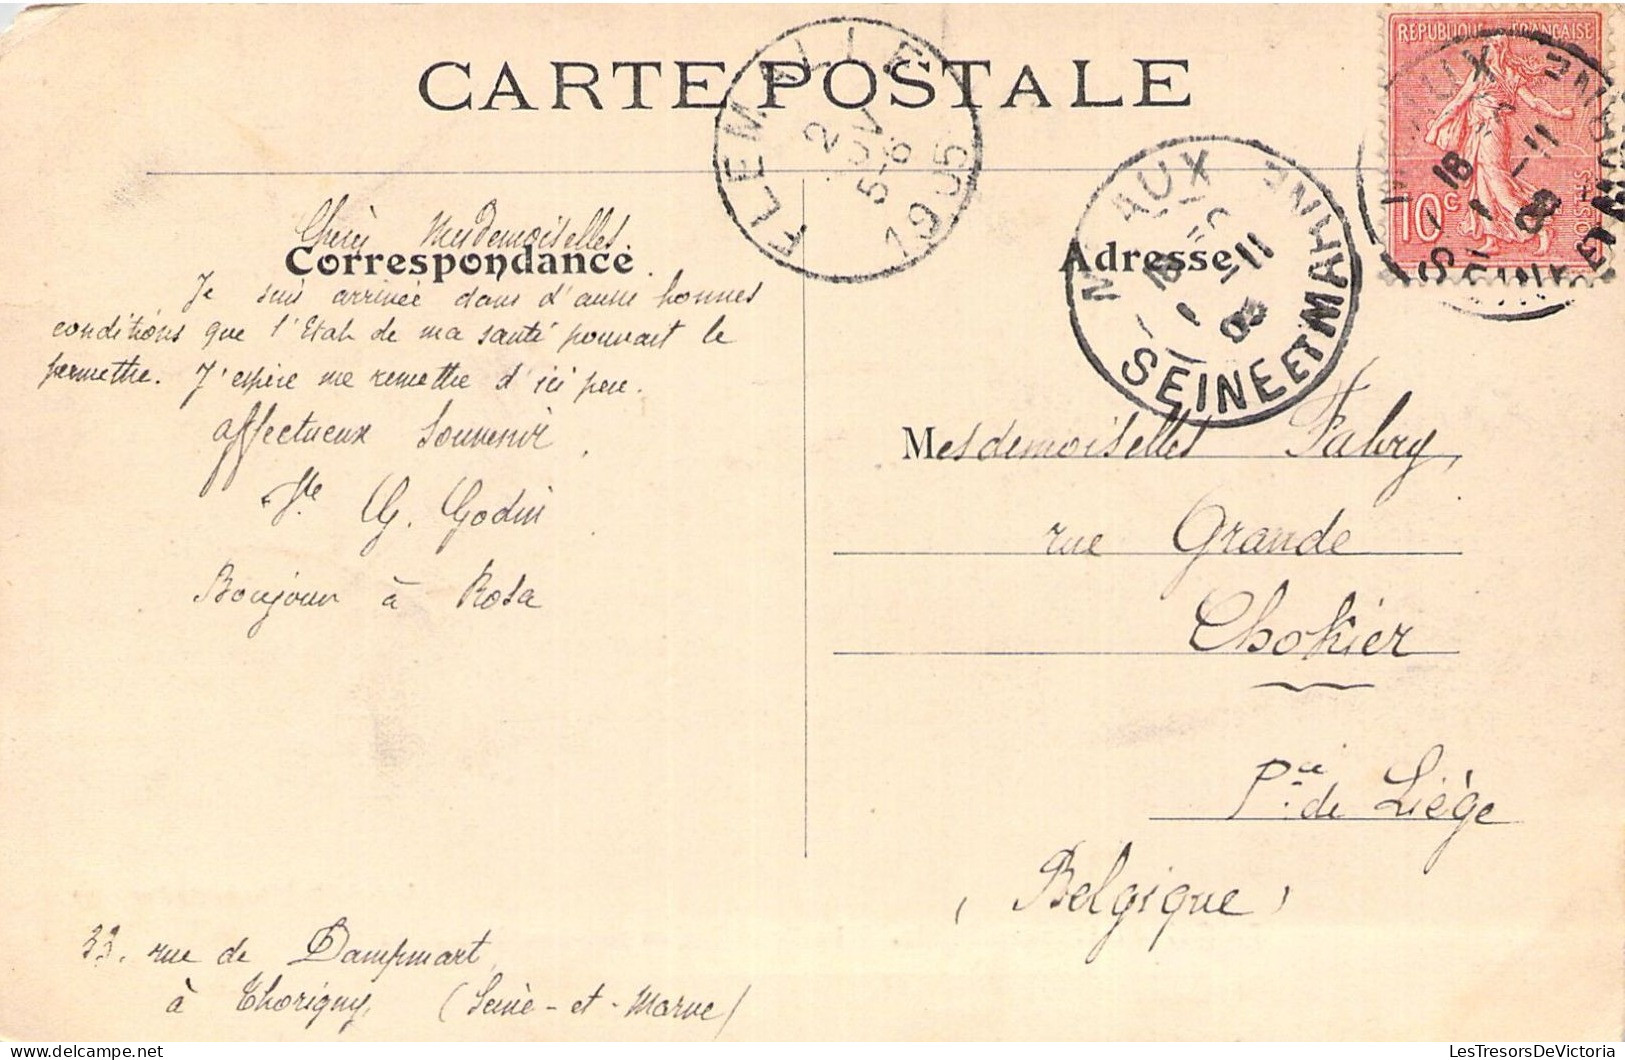 CARTE POSTALE
RÉPUBLIQUE FRANÇAISE
10c
FLEMALLE
2
5-6
1905
MEAUX
18
1-11
05
SEINE ET MARNE
MEAUX
18
1-11
05
SEINE ET MARNE
Chères Mesdemoiselles
Correspondance
Adresse
Je suis arrivée dans d'aussi bonnes
conditions que l'état de ma santé pouvait le
permettre. J'espère me remettre d'ici peu.
affectueux souvenir.
G. Godin
Bonjour à Rosa
33, rue de Dampmart
à Thorigny, (Seine-et-Marne)
Mesdemoiselles Fabry,
rue Grande
Chokier
Pce de Liége
(Belgique)
LesTresorsDeVictoria